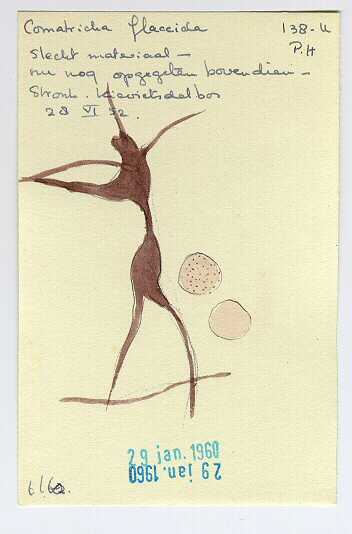 Comatricha flaccida
138-U
P.H
slecht materiaal -
nu nog opgegeten bovendien -
Stronk.
28 VI 52.
29 jan. 1960
29 jan. 1960